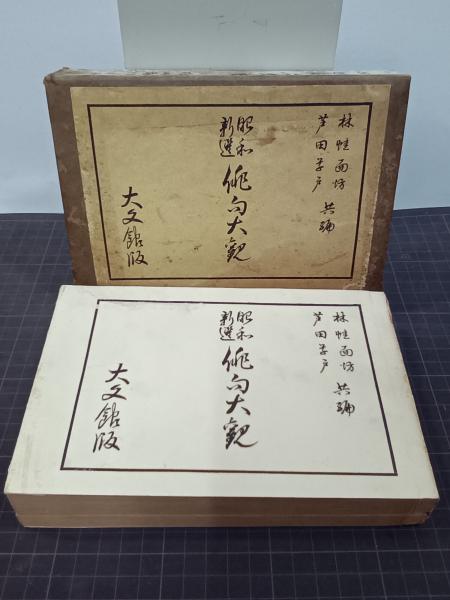 林 面坊
芦田 戸
共編
昭和
新選
俳句大観
大文館版
林 面坊
芦田 戸
共編
昭和
新選
俳句大観
大文館版